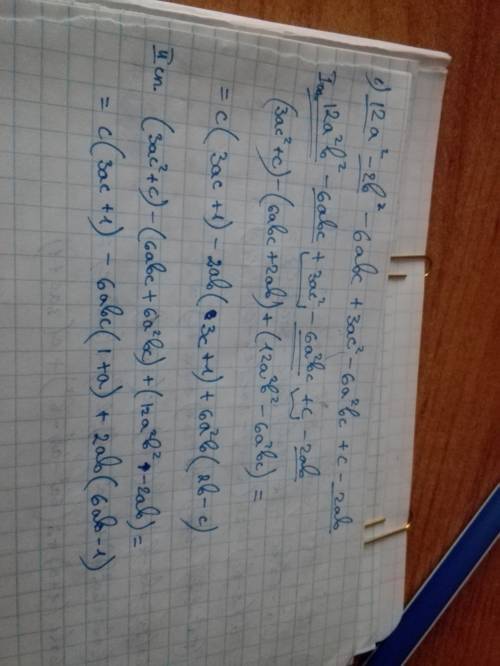 c) 12a² - 2b² - 6abc + 3ac² - 6a²bc + c - 2ab
I сп. 12a²b² - 6abc + 3ac² - 6a²bc + c - 2ab
(3ac² + c) - (6abc + 2ab) + (12a²b² - 6a²bc) =
= c(3ac + 1) - 2ab(3c + 1) + 6a²b(2b - c)
II сп. (3ac² + c) - (6abc + 6a²bc) + (12a²b² - 2ab) =
= c(3ac + 1) - 6abc(1 + a) + 2ab(6ab - 1)